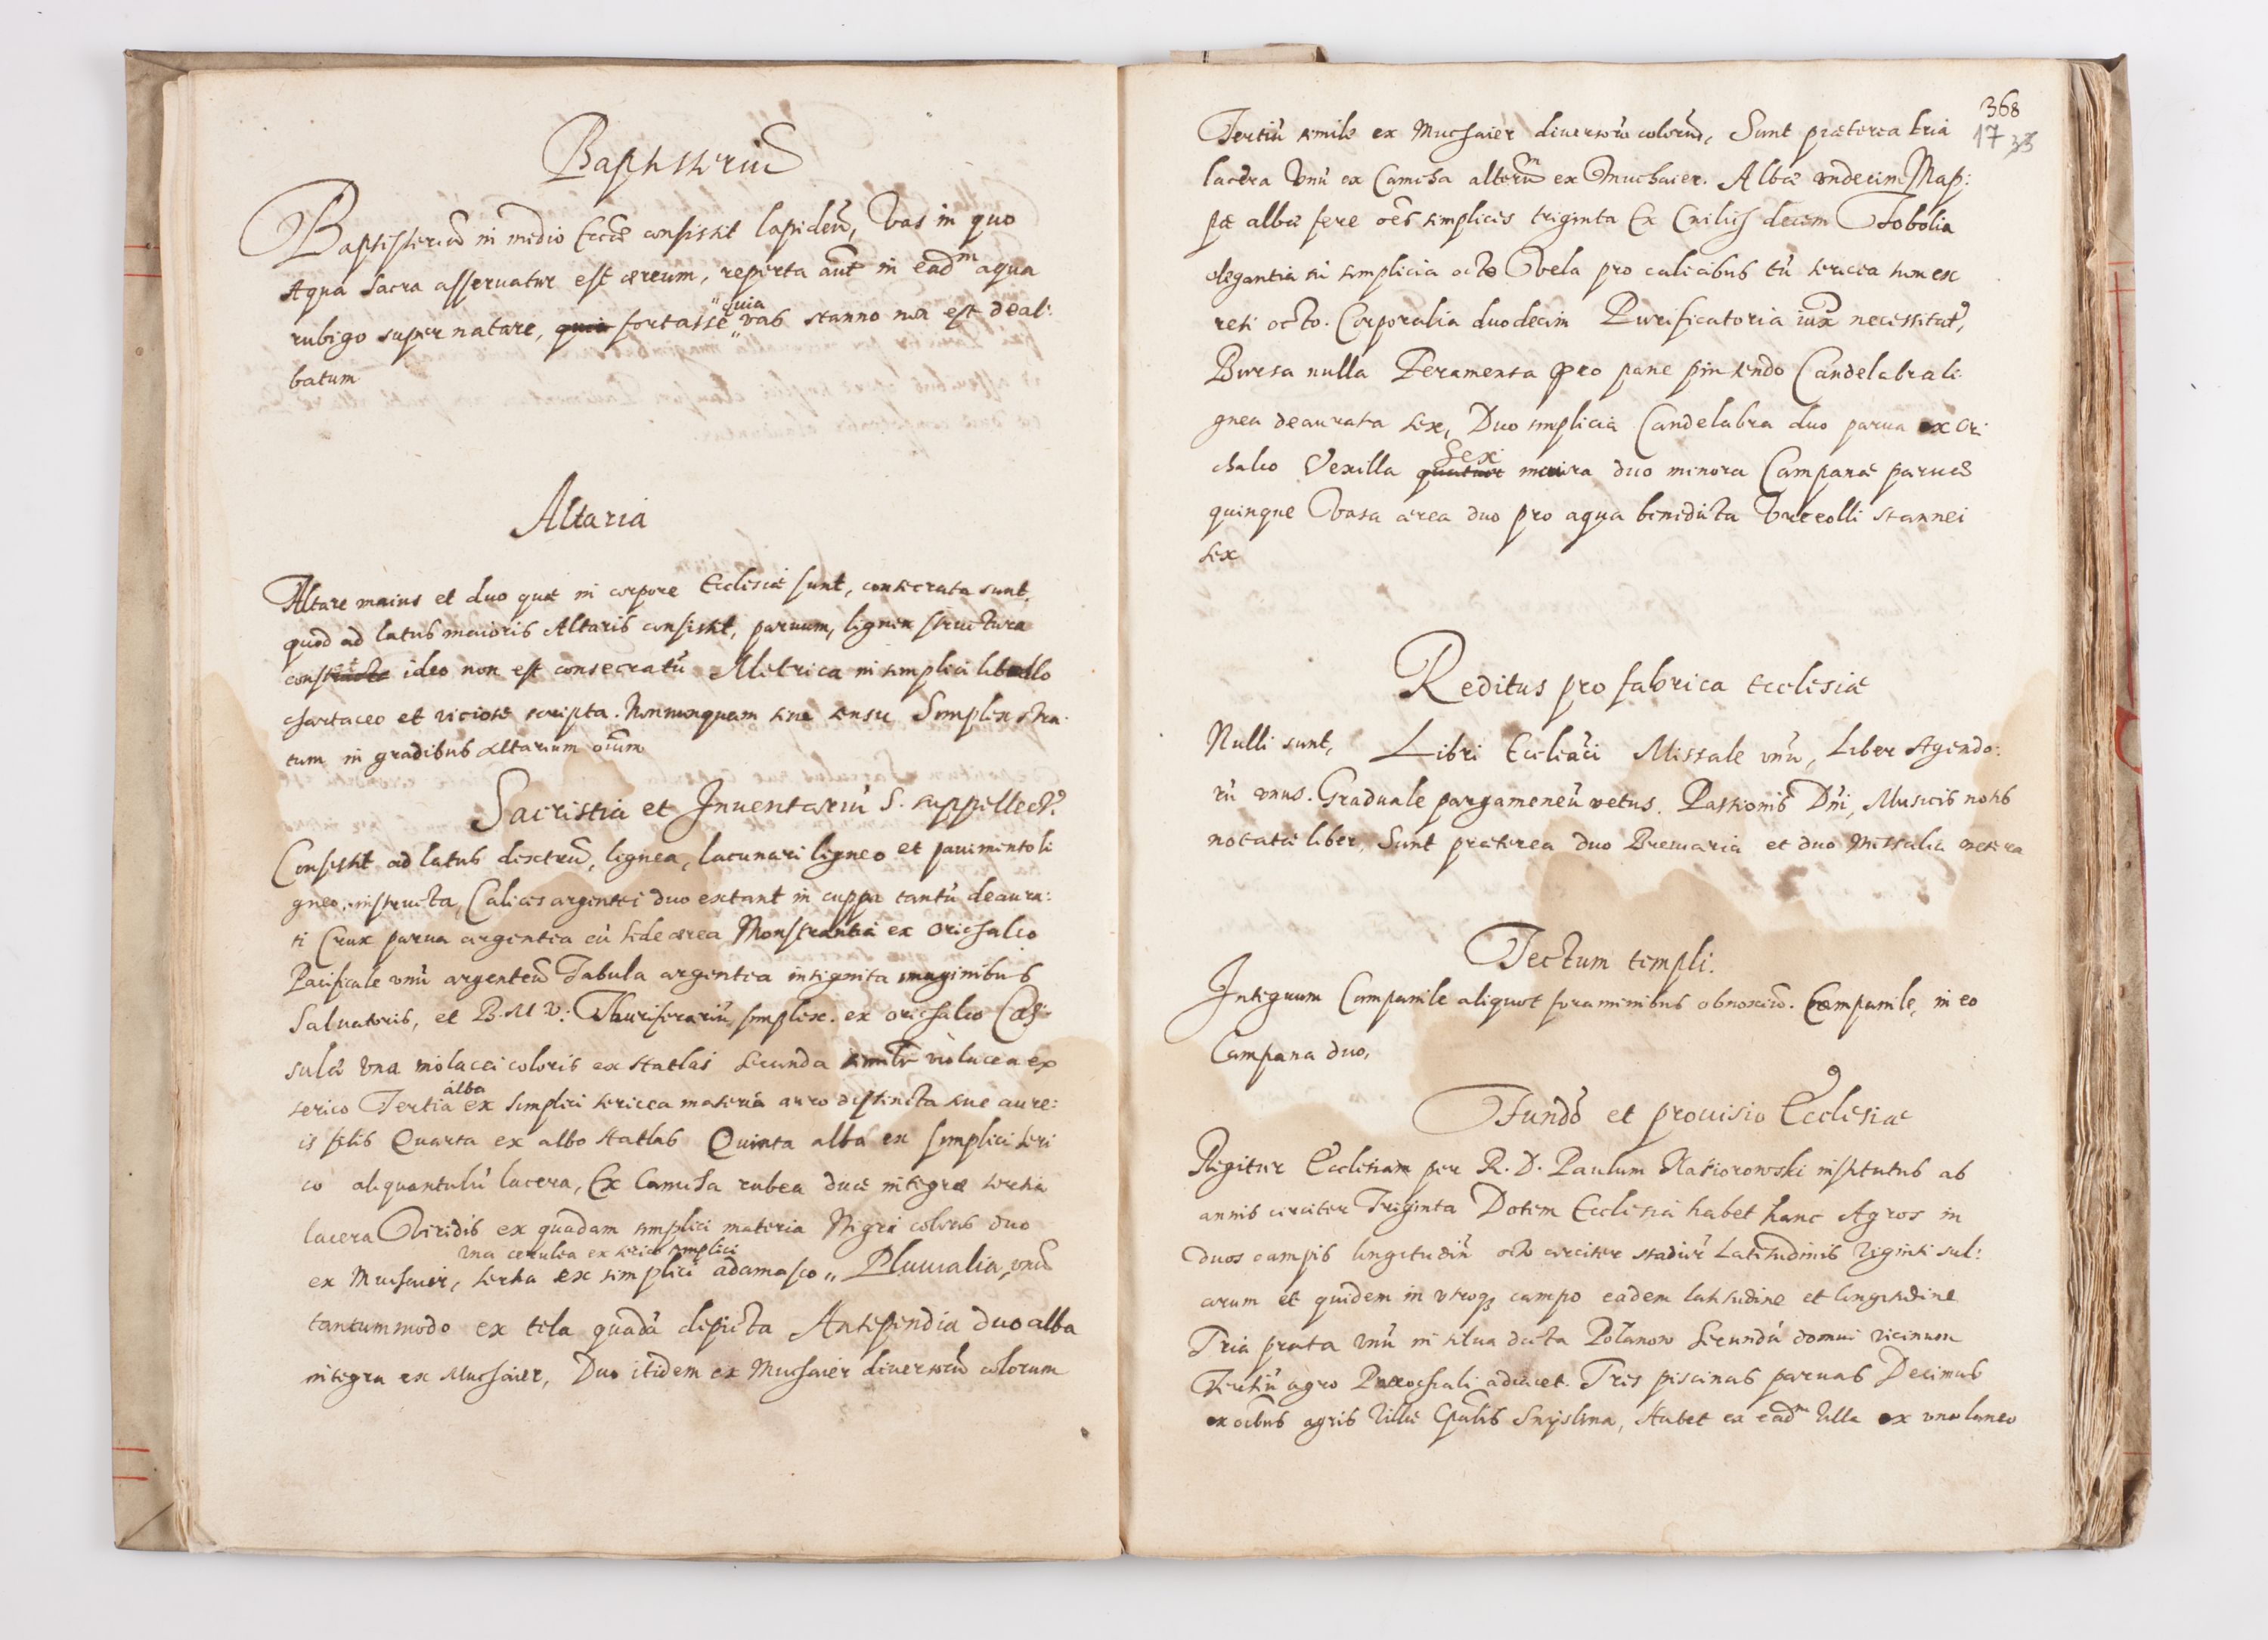 Baptisteriū
Baptisteriū in medio Eccæ consistit lapideū, Vas in quo
Aqua Sacra asseruatur est æreum, reperta aūt in eadm aqua
rubigo super natare, quia fortasse quia vas stanno nō est deal:
batum
Altaria
Altare maius et duo quæ in corpore Ecclesiæ sunt, consecrata sunt,
quod ad latus maioris Altaris consistit, paruum, lignea structura
ideo non est consecratū Metrica in simplici libello
chartaceo et viciose scripta. Nonnunquam sine sensu Simplex stra:
tum in gradibus altarium oīum
Sacristia et Inuentariū S. suppellect:
Consistit ad latus dextrū, lignea, lacunari ligneo et pauimento li
gneo instructa, Calices argentei duo extant in cuppa tantū deaura:
ti Crux parua argentea cū sede ærea Monstrantia ex orichalco
Pacificale vnū argenteū Tabula argentea insignita imaginibus
Saluatoris, et B. M. V: Thuriferariū simplex. ex orichalco Cas:
sulæ vna violacei coloris ex Hatlas secunda similr violacea ex
serico Tertia alba ex simplici sericea materia auro distincta siue aure:
is filis Quarta ex albo Hatlas Quinta alba ex simplici seri
co aliquantulū lacera, Ex Camcha rubea duæ integræ tertia
lacera Viridis ex quadam simplici materia Nigri coloris duo
vna cerulea ex serico simplici
ex Muchaier, tertia ex simplici adamasco,, Pluuialia, vnū
tantummodo ex tela quadā depicta Antependia duo alba
integra ex Muchaier, Duo itidem ex Muchaier diuersorū colorum
368
17 33
Tertiū simile ex Muchaier diuersorū colorum, Sunt præterea tria
lacera Vnū ex Camcha alterū ex Muchaier. Albæ vndecim Map:
pæ albæ fere oēs simplices triginta Ex Cniliis decem Tobolia
elegantia simplicia octo Vela pro calicibus tū sericea tum ex
reti octo. Corporalia duodecim Purificatoria iuxa necessitat,
Bursa nulla Feramenta pro pane pinsendo Candelabra li
gnea deaurata sex, Duo simplicia Candelabra duo parua ex ori
chalco Vexilla quatuor sex maiora duo minora Campanæ paruæ
quinque Vasa ærea duo pro aqua benedicta Vrceolli stannei
sex
Reditus pro fabrica Ecclesiæ
Nulli sunt, Libri Eccleāci Missale vnū, Liber Agendo:
rū vnus. Graduale pargameneū vetus. Passionis Dñi, Musicis notis
notatæ liber, Sunt præterea duo Breuiaria et duo Missalia vetera
Tectum templi.
Integrum Campanile aliquot foraminibus obnoxiū. Campanile, in eo
Campana duo,
Fundō et prouisio Ecclesiæ
Regitur Ecclesiam per R. D. Paulum Nasiorowski institutus ab
annis circiter Triginta Dotem Ecclesia habet hanc Agros in
duos campis longitudin octo circiter stadiur Latitudinis Viginti sul:
corum et quidem in vtroq campo eadem latitudine et longitudine
Tria prata vnū in silua dicta Polanow Secundū domui vicinum
Tertiū agro Parochiali adiacet. Tres piscinas paruas Decimas
ex oībus agris Villæ Snyslina, Habet ex eadm Villa ex vno laneo